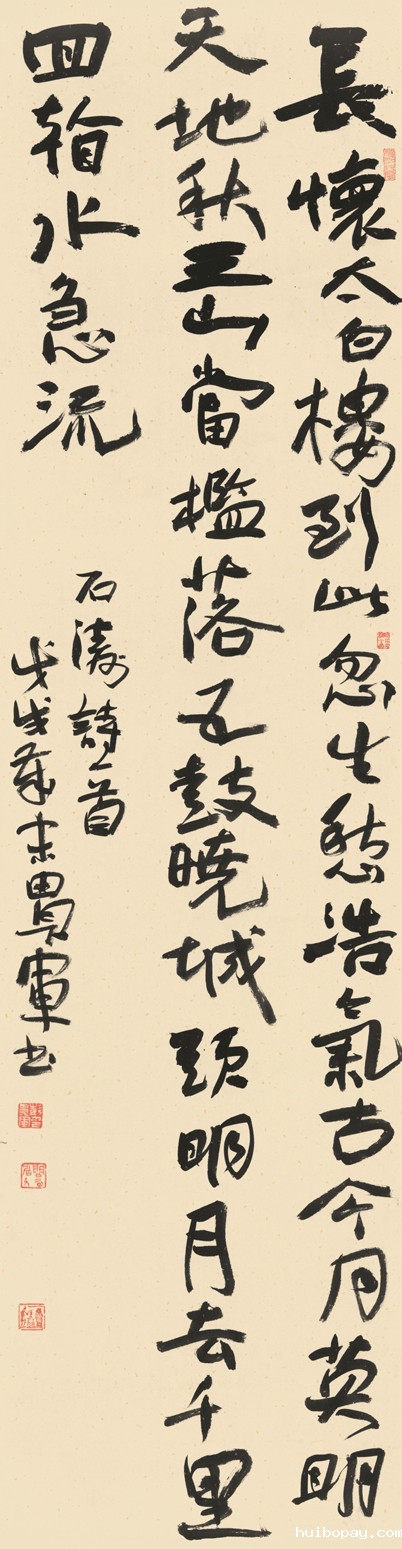 長懷太白樓到此忽生愁浩氣古今月英明
天地秋三山當檻落五鼓曉城頭明月去千里
回水急流
石濤詩一首
戊戌年末軍书
huibopay.com